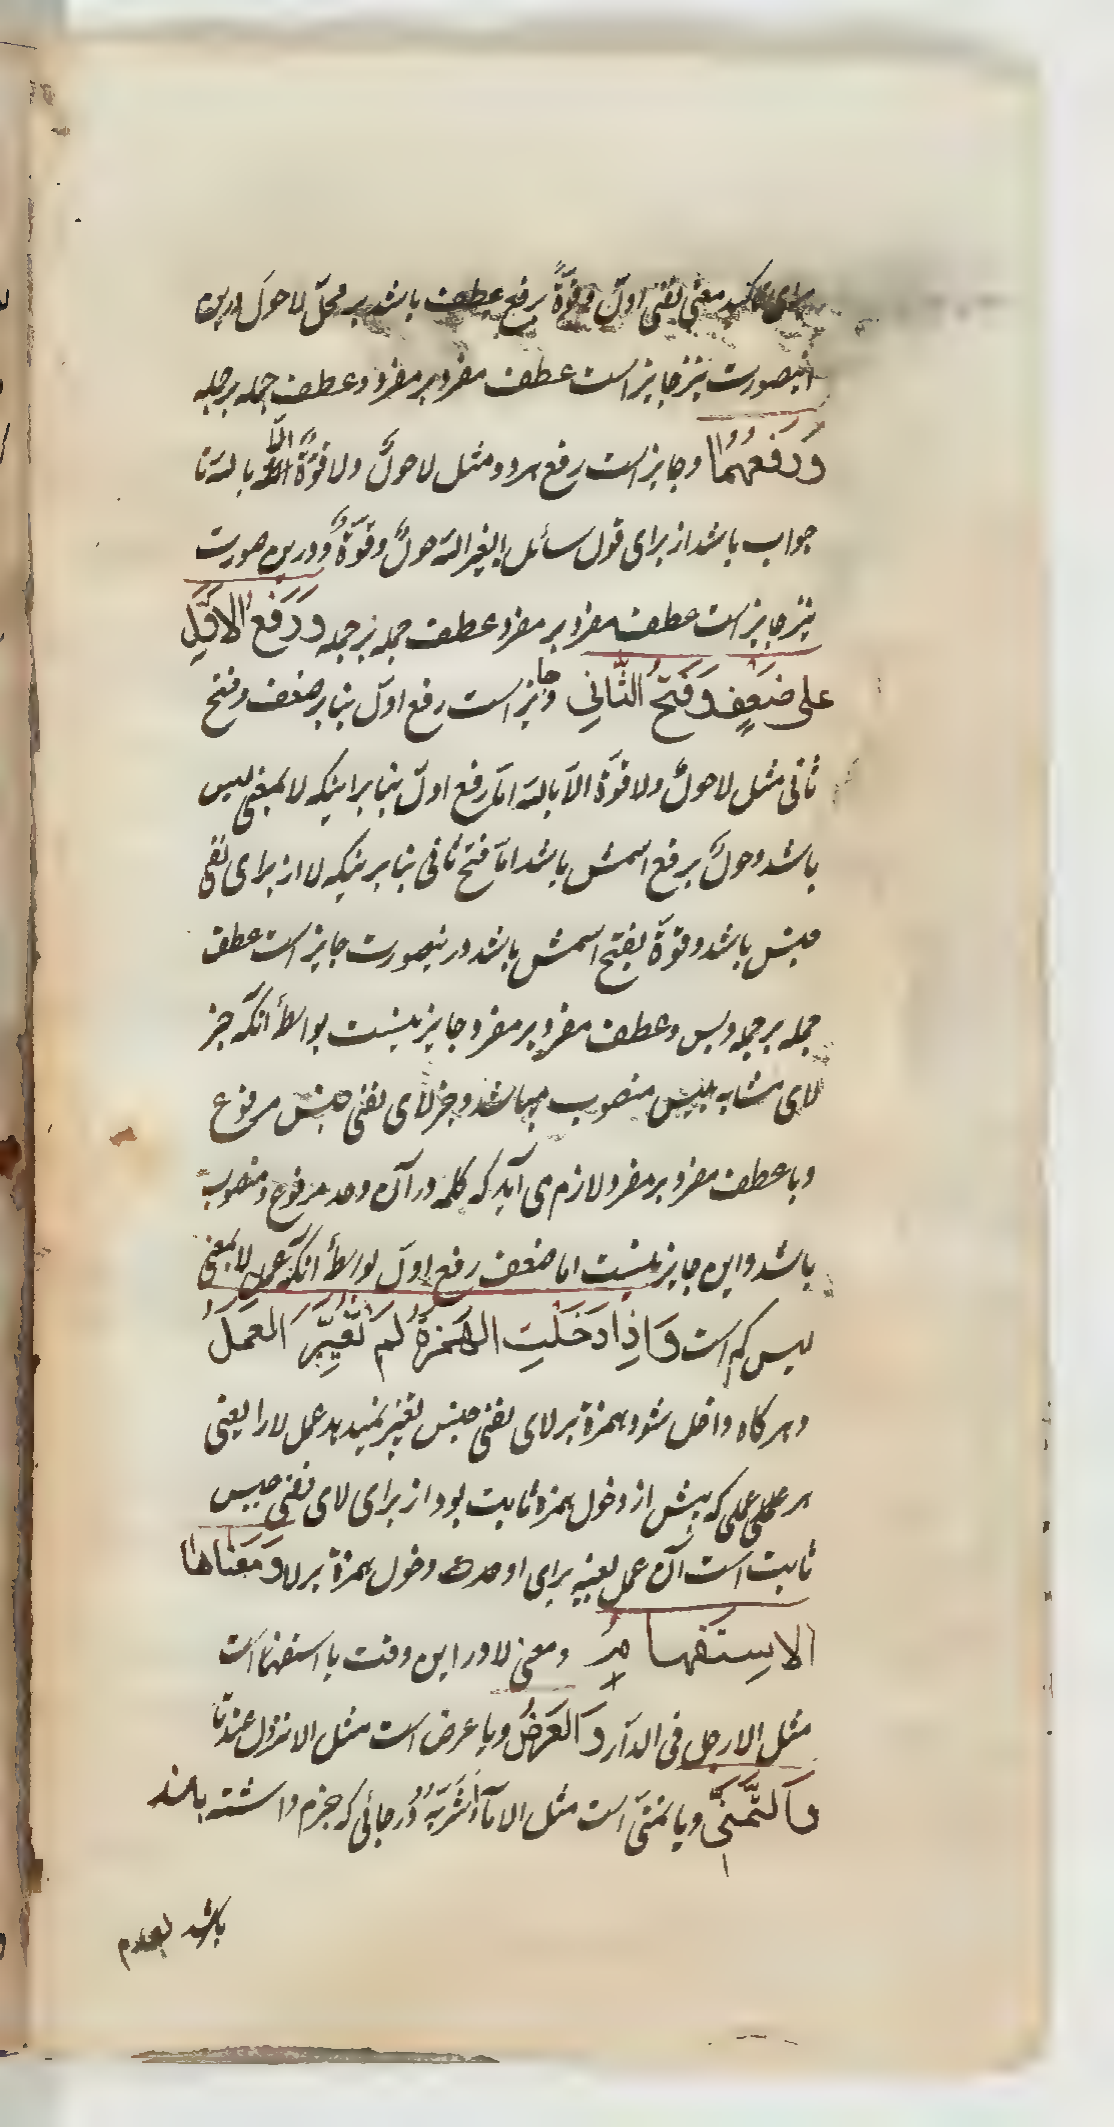 برای تاکید معنی نفی اول و قوّةٌ برفع عطف باشد بر محلّ لا حولَ درین
اینصورت نیز جایز است عطف مفرد بر مفرد و عطف جمله بر جمله
وَرَفعُهُمَا و جایز است رفع هر دو مثل لا حولٌ ولا قوّةٌ الّا بالله تا
جواب باشد از برای قول سائل ابغیر الله حولٌ و قوّةٌ و درین صورت
نیز جایز است عطف مفرد بر مفرد عطف جمله بر جمله وَرَفعُ الاَوَّلِ
علی ضَعفٍ وَفَتحُ الثّانِی و جایز است رفع اول بنا بر ضعف و فتح
ثانی مثل لا حولٌ ولا قوّةَ الّا بالله امّا رفع اول بنا بر اینکه لا بمعنی لیس
باشد و حولٌ برفع اسمش باشد امّا فتح ثانی بنا بر اینکه لا از برای نفی
جنس باشد و قوّةَ بفتح اسمش باشد در نیصورت جایز است عطف
جمله بر جمله و بس و عطف مفرد بر مفرد جایز نیست بواسطهٔ آنکه خبر
لای مشابه بلیس منصوب میباشد و خبر لای نفی جنس مرفوع
و با عطف مفرد بر مفرد لازم می آید که کلمه در آن واحد مرفوع و منصوب
باشد و این جایز نیست اما ضعف رفع اول بواسطهٔ آنکه عمل لا بمعنی
لیس کم است وَاِذا دَخَلَتِ الهَمزَةُ لَم تُغَیِّرِ العَمَلَ
و هر گاه داخل شود همزه بر لای نفی جنس تغییر نمیدهد عمل لا را یعنی
هر عملی که پیش از دخول همزه ثابت بود از برای لای نفی جنس
ثابت است آن عمل بعینه برای او بعد دخول همزه بر لا وَمَعناها
الاِستِفهامُ و معنی لا در این وقت یا استفهام است
مثل الا رجل فی الدار وَالعَرضُ و یا عرض است مثل الا نزول عندنا
وَالتَّمَنّی و یا تمنّی است مثل الا مآءَ اَشرَبُهُ در جائی که جزم داشته باشد
باشد بعدم